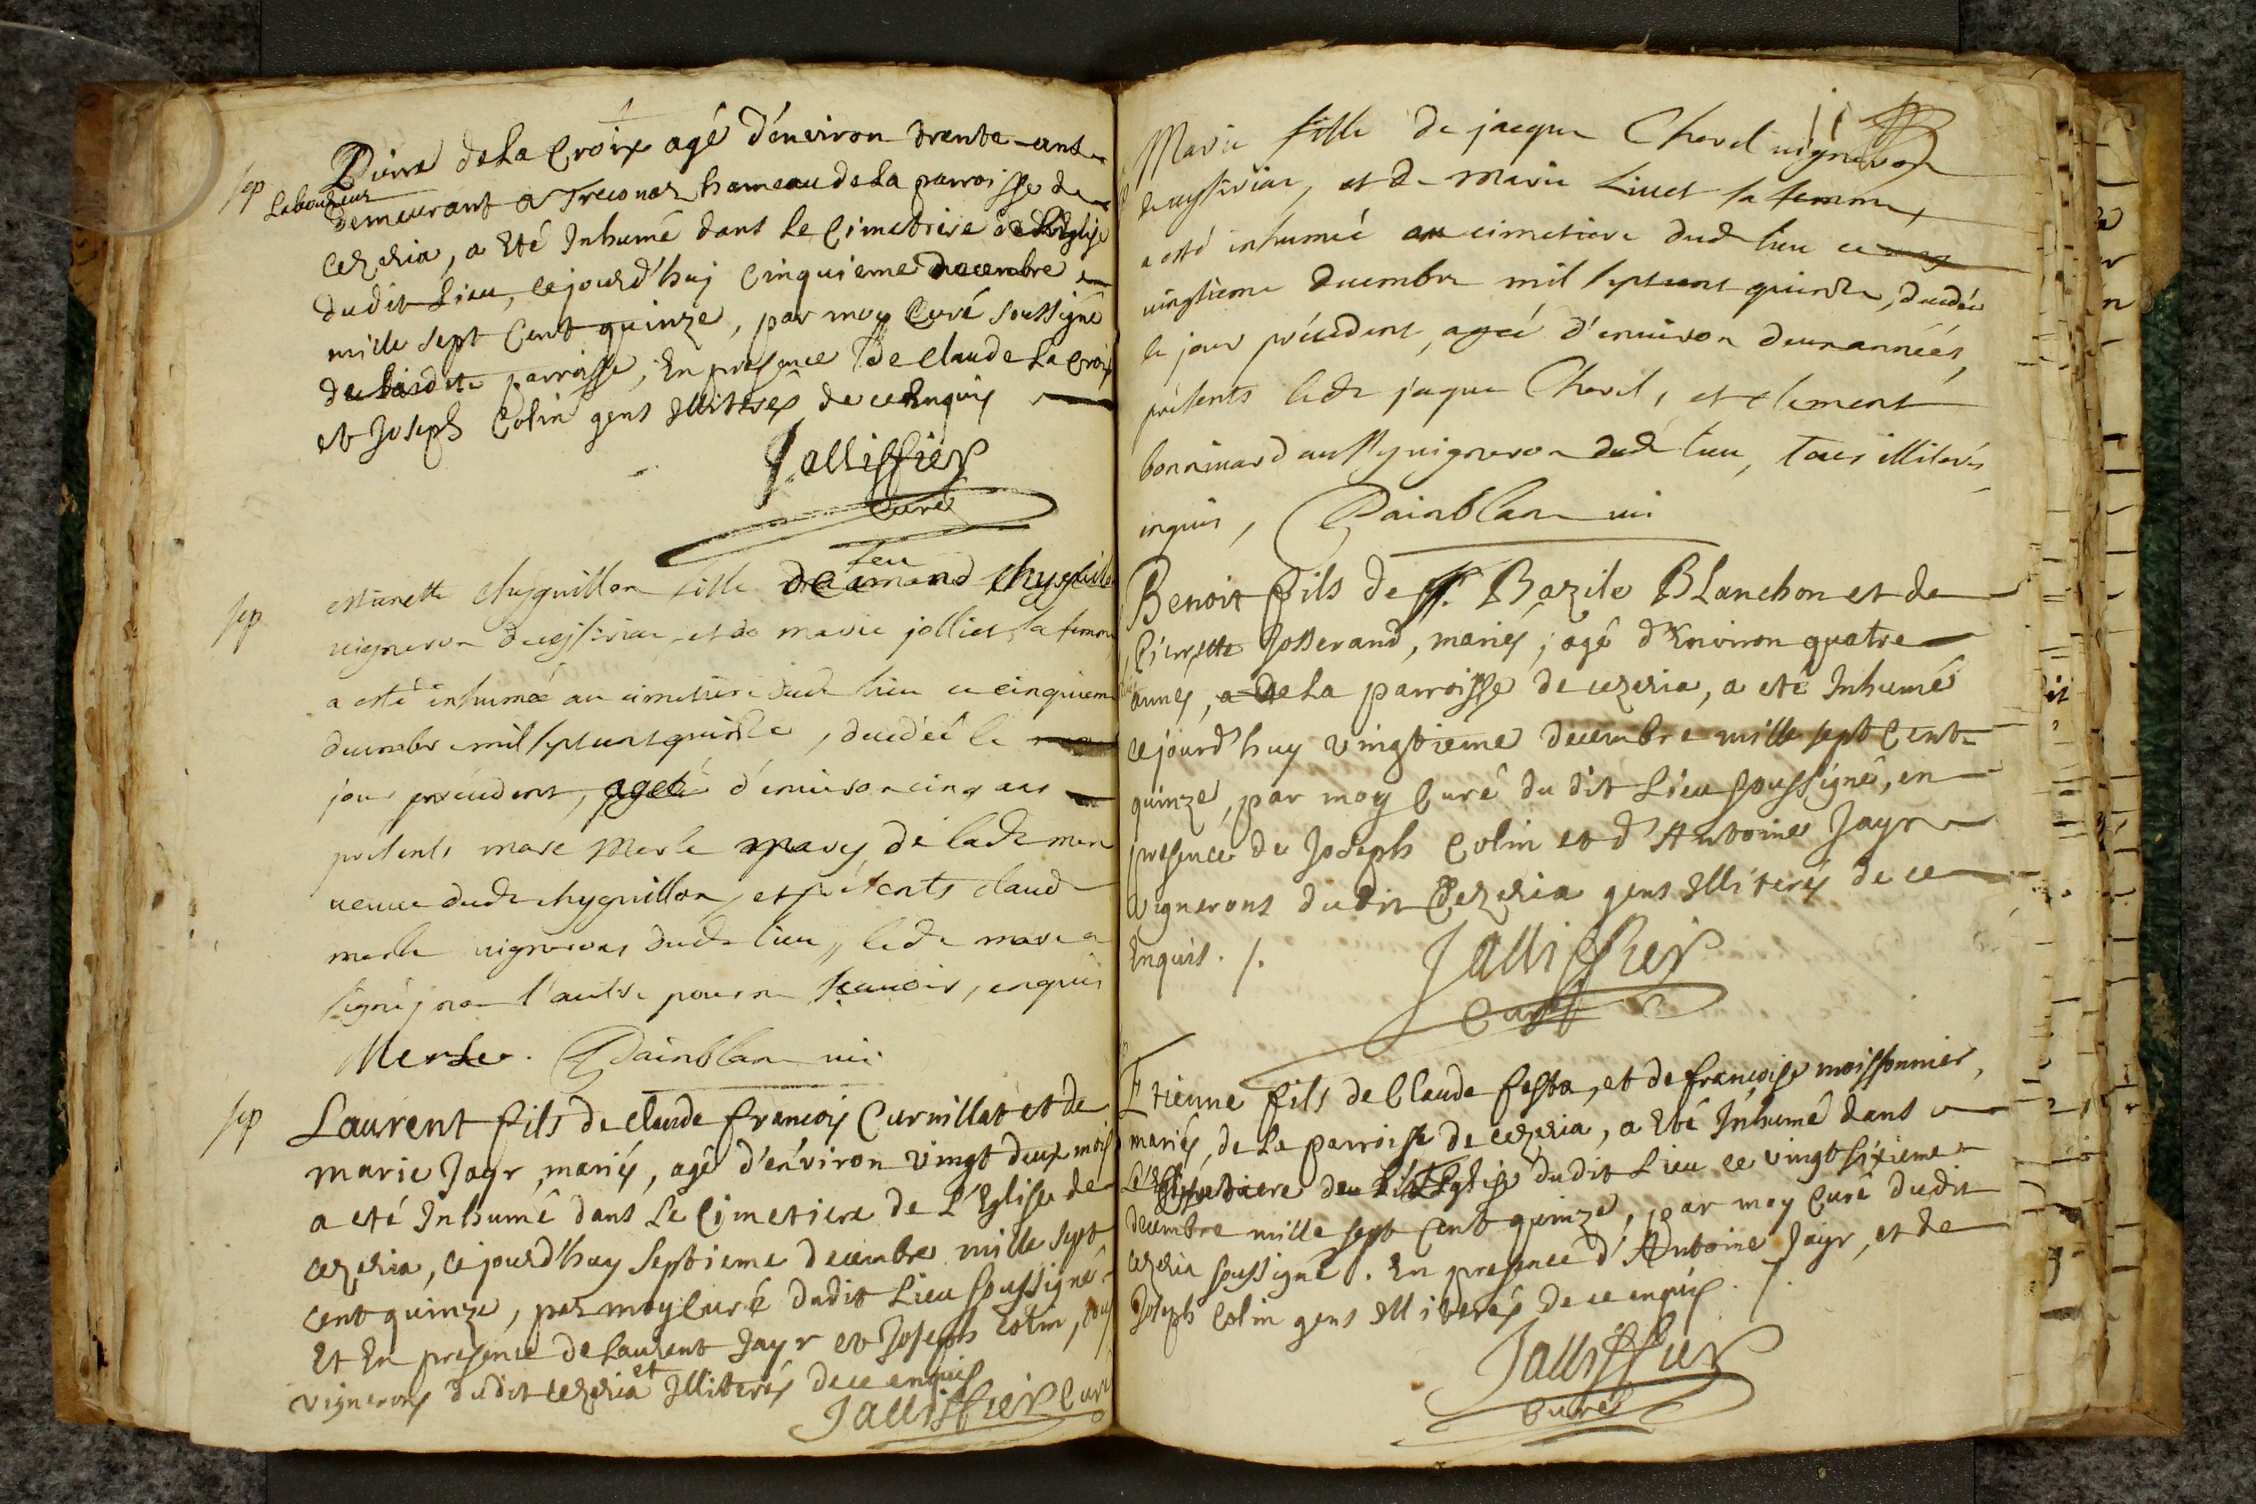 sep
Pierre de La Croix agé d'environ trente ans
Laboureur
demeurant a Treconaz hameau de La parroisse de
Cezeria, a Eté Inhumé dans Le Cimetiere de L'Eglise
dudit Lieu, cejourd'huy Cinquieme decembre
mille sept Cent quinze, par moy Curé soussigné
de Laditte parroisse, En presence de Claude La Croix
et Joseph Colin gens Illiterés de ce Enquis
Jallissier
Curé
sep
estiennette chyguillon fille de feu amand chyguillon
vigneron de ceysiriac, et de marie jolliet, sa femme,
a esté inhumée au cimetiere dud lieu ce cinquieme
decembre mil septcent quinze, decedée le
jour precedent, agée d'environ cinq ans
présents marc Merle mary de lade mere
veuve dudt chyguillon, et présents claude
merle vignerons dudt lieu, ledt marc a
signé, non l'autre pour ne sçavoir, enquis
Merle. Painblanc vic
sep
Laurent fils de Claude francois Curnillat et de
marie Jayr, mariés, agé d'environ vingt deux mois
a eté Inhumé dans Le Cimetiere de L'Eglise de
cezeria, cejourd'huy septieme decembre mille sept
cent quinze, par moy Curé dudit Lieu soussigné
Et En presence de Laurent Jayr et Joseph Colin, tous
vignerons dudit cezeria et Illiterés de ce enquis
Jallissier Curé
Marie fille de jacque Chevel vigneron
de ceysiriac, et de Marie Livet sa femme,
a esté inhumée au cimetiere dudt lieu ce
vingtieme decembre mil septcent quinze, decedée
le jour précédent, agée d'environ deux années,
présents ledt jaque Chevel, et clement
bonnivard aussy vigneron dudt lieu, tous illiterés,
inquis, Painblanc vic
Benoit fils de Sr. Bazile BLanchon et de
Pierrette Josserand, mariés, agé d'Environ quatre
années, de La parroisse de cezeria, a eté Inhumé
cejourd'huy vingtieme decembre mille sept Cent
quinze, par moy Curé du dit Lieu soussigné, en
presence de Joseph Colin et d'Antoine Jayr
vignerons dudit Cezeria gens Illiterés de ce
Enquis. /.
Jallissier
Curé
Etienne fils de Claude festa, et de francoise moissonnier,
mariés, de La parroisse de cezeria, a Eté Inhumé dans
Le Cimetiere de L'Eglise dudit Lieu ce vingt sixieme
decembre mille sept Cent quinze, par moy Curé dudit
cezeria soussigné. En presence d'Antoine Jayr, et de
Joseph Colin gens Illiterés de ce enquis. /.
Jallissier
Curé